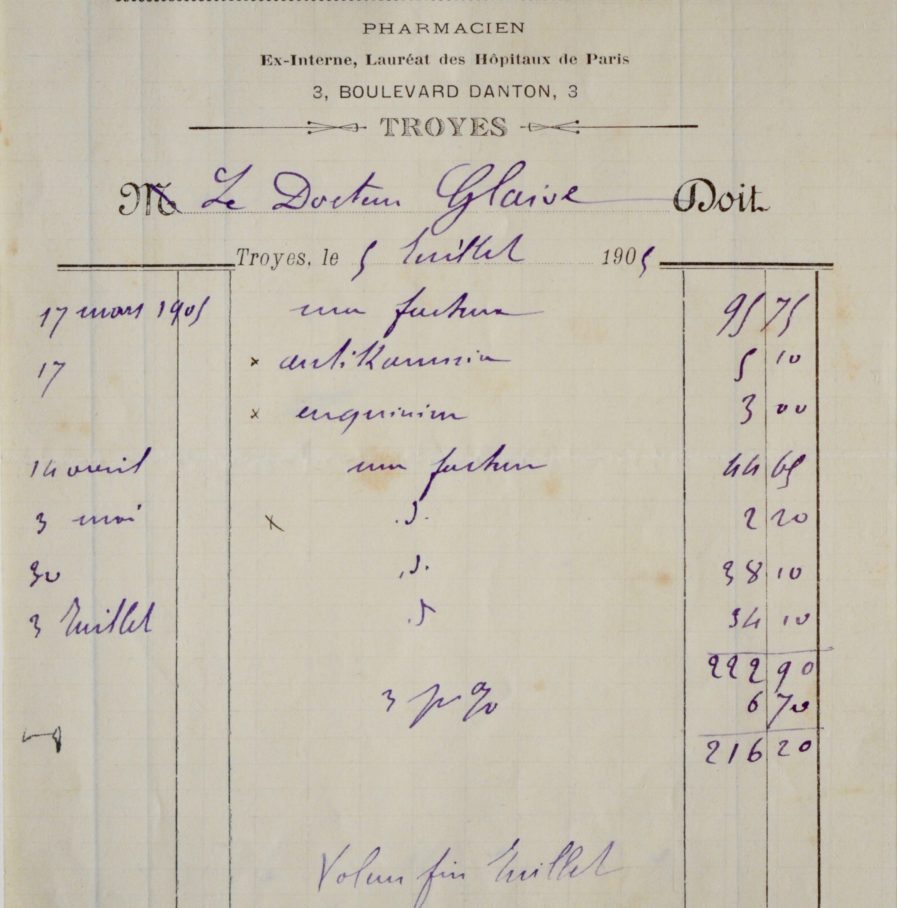 PHARMACIEN
Ex-Interne, Lauréat des Hôpitaux de Paris
3, BOULEVARD DANTON, 3
TROYES
M Le Docteur Glaive Doit
Troyes, le 5 Juillet 1905
17 mars 1905 une facture 95 75
17 x antikamnia 5 10
x euquinine 3 00
14 avril une facture 44 65
3 mai x 2 20
30 38 10
3 Juillet 34 10
222 90
3 p % 6 70
216 20
fin Juillet